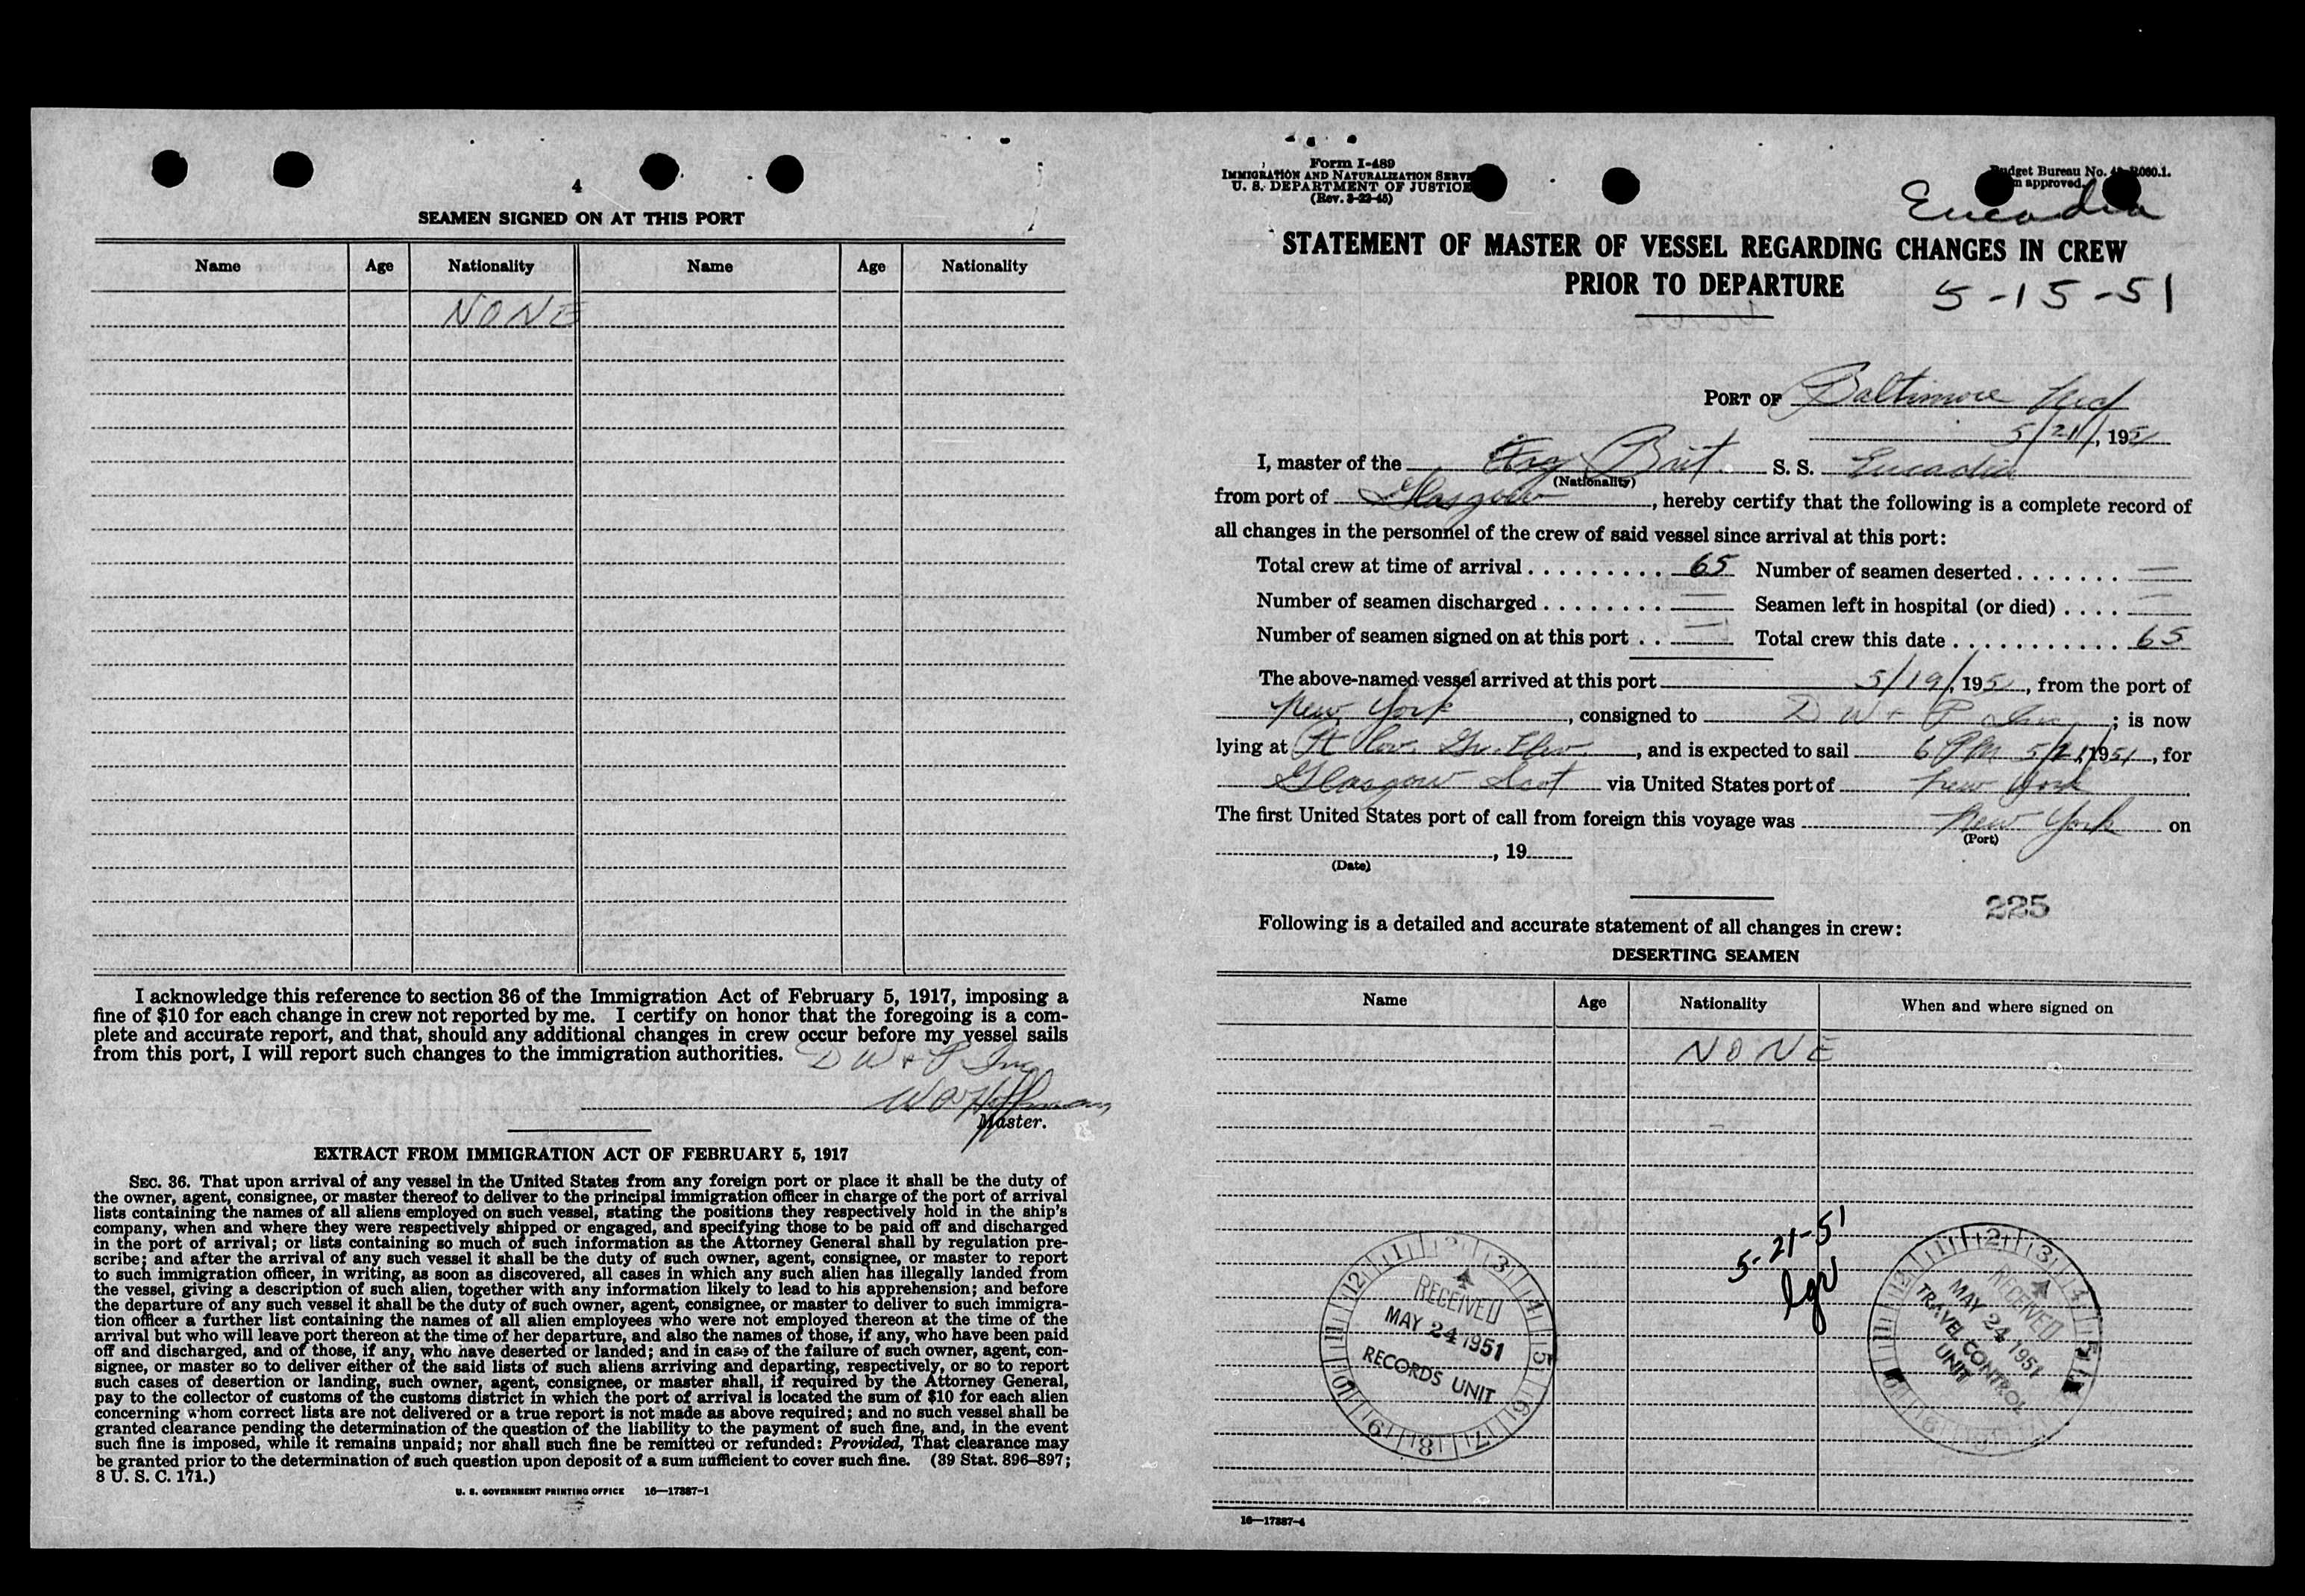 4
SEAMEN SIGNED ON AT THIS PORT
Name Age Nationality Name Age Nationality
NONE
I acknowledge this reference to section 36 of the Immigration Act of February 5, 1917, imposing a
fine of $10 for each change in crew not reported by me. I certify on honor that the foregoing is a com-
plete and accurate report, and that, should any additional changes in crew occur before my vessel sails
from this port, I will report such changes to the immigration authorities.
D W + P Inc
W Hoffman
Master.
EXTRACT FROM IMMIGRATION ACT OF FEBRUARY 5, 1917
SEC. 36. That upon arrival of any vessel in the United States from any foreign port or place it shall be the duty of
the owner, agent, consignee, or master thereof to deliver to the principal immigration officer in charge of the port of arrival
lists containing the names of all aliens employed on such vessel, stating the positions they respectively hold in the ship's
company, when and where they were respectively shipped or engaged, and specifying those to be paid off and discharged
in the port of arrival; or lists containing so much of such information as the Attorney General shall by regulation pre-
scribe; and after the arrival of any such vessel it shall be the duty of such owner, agent, consignee, or master to report
to such immigration officer, in writing, as soon as discovered, all cases in which any such alien has illegally landed from
the vessel, giving a description of such alien, together with any information likely to lead to his apprehension; and before
the departure of any such vessel it shall be the duty of such owner, agent, consignee, or master to deliver to such immigra-
tion officer a further list containing the names of all alien employees who were not employed thereon at the time of the
arrival but who will leave port thereon at the time of her departure, and also the names of those, if any, who have been paid
off and discharged, and of those, if any, who have deserted or landed; and in case of the failure of such owner, agent, con-
signee, or master so to deliver either of the said lists of such aliens arriving and departing, respectively, or so to report
such cases of desertion or landing, such owner, agent, consignee, or master shall, if required by the Attorney General,
pay to the collector of customs of the customs district in which the port of arrival is located the sum of $10 for each alien
concerning whom correct lists are not delivered or a true report is not made as above required; and no such vessel shall be
granted clearance pending the determination of the question of the liability to the payment of such fine, and, in the event
such fine is imposed, while it remains unpaid; nor shall such fine be remitted or refunded: Provided, That clearance may
be granted prior to the determination of such question upon deposit of a sum sufficient to cover such fine. (39 Stat. 896–897;
8 U. S. C. 171.)
U. S. GOVERNMENT PRINTING OFFICE 16—17887-1
Form I-489
IMMIGRATION AND NATURALIZATION
U. S. DEPARTMENT OF JUSTICE
(Rev. 3-22-45)
Budget Bureau No.
approved.
Eucadia
STATEMENT OF MASTER OF VESSEL REGARDING CHANGES IN CREW
PRIOR TO DEPARTURE
5-15-51
PORT OF Baltimore Md
5/21/, 1951
I, master of the Brit. S. S. Eucadia
(Nationality)
from port of Glasgow, hereby certify that the following is a complete record of
all changes in the personnel of the crew of said vessel since arrival at this port:
Total crew at time of arrival . . . . . . . . . . 65 Number of seamen deserted . . . . . . . —
Number of seamen discharged . . . . . . . . — Seamen left in hospital (or died) . . . . —
Number of seamen signed on at this port . . — Total crew this date . . . . . . . . . . . 65
The above-named vessel arrived at this port 5/19/, 1951, from the port of
New York, consigned to D W + P Inc; is now
lying at Gr. Elev., and is expected to sail 6 PM 5/21/1951, for
Glasgow Scot via United States port of New York
The first United States port of call from foreign this voyage was New York on
(Port)
, 19
(Date)
225
Following is a detailed and accurate statement of all changes in crew:
DESERTING SEAMEN
Name Age Nationality When and where signed on
NONE
5-21-51
RECEIVED
MAY 24 1951
RECORDS UNIT
RECEIVED
MAY 24 1951
TRAVEL CONTROL
UNIT
16—17887-4